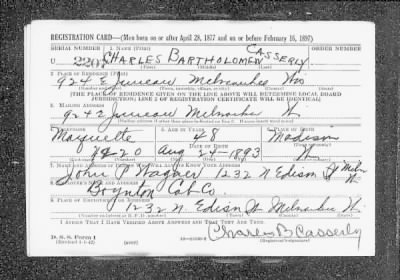 REGISTRATION CARD—(Men born on or after April 28, 1877 and on or before February 16, 1897)
SERIAL NUMBER 1. NAME (Print) ORDER NUMBER
U 2207 CHARLES BARTHOLOMEW CASSERLY
2. PLACE OF RESIDENCE (Print)
924 E Juneau Milwaukee Wis
[THE PLACE OF RESIDENCE GIVEN ON THE LINE ABOVE WILL DETERMINE LOCAL BOARD
JURISDICTION; LINE 2 OF REGISTRATION CERTIFICATE WILL BE IDENTICAL]
3. MAILING ADDRESS
924 E Juneau Milwaukee
4. TELEPHONE 5. AGE IN YEARS 6. PLACE OF BIRTH
Marquette 48 Madison
DATE OF BIRTH
Aug 24 1893
7. NAME AND ADDRESS OF PERSON WHO WILL ALWAYS KNOW YOUR ADDRESS
John P Wagner 1232 N Edison St Milw
8. EMPLOYER'S NAME AND ADDRESS
Boynton Cab Co.
9. PLACE OF EMPLOYMENT OR BUSINESS
1232 N Edison St Milwaukee W.
I AFFIRM THAT I HAVE VERIFIED ABOVE ANSWERS AND THAT THEY ARE TRUE.
D. S. S. Form 1
(Revised 4-1-42) (over) Charles B Casserly
(Registrant's signature)